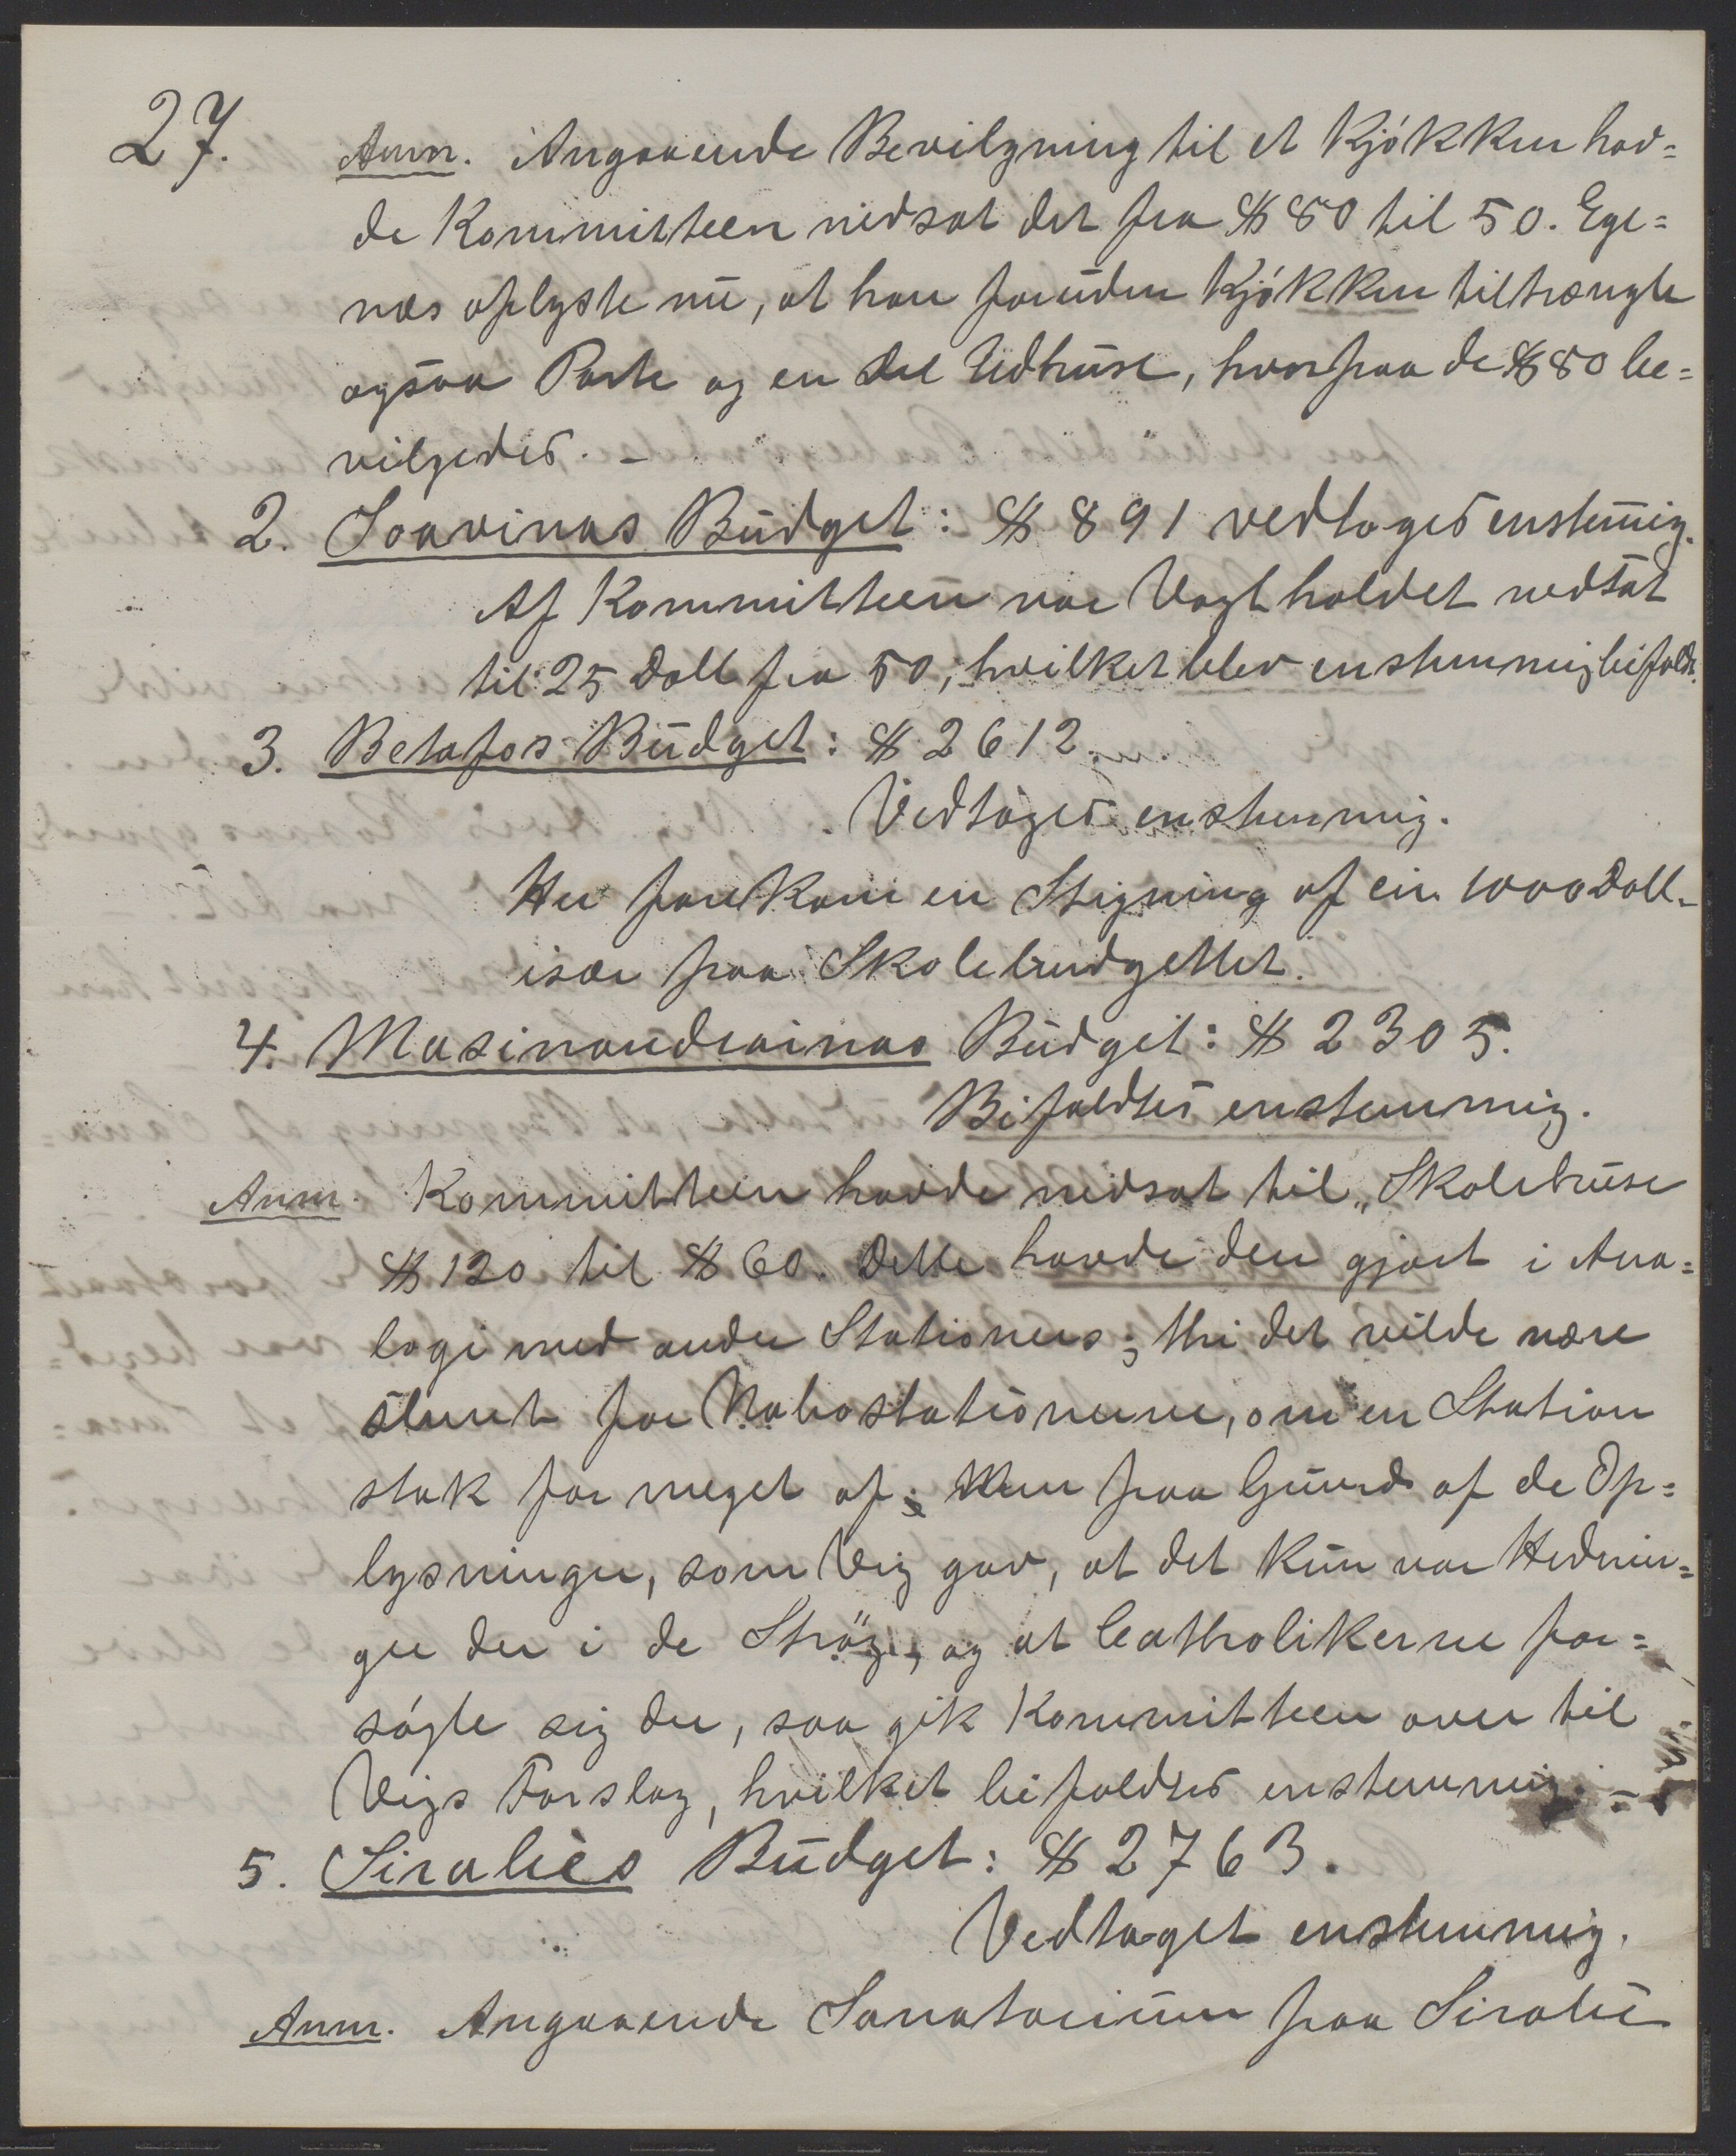 27.
Anm. Angaaende Bevilgning til et Kjøkken hav=
de Kommitteen nedsat det fra $ 80 til 50. Ege=
næs oplyste nu, at han foruden Kjøkken tiltrængte
ogsaa Porte og en Del Udhuse, hvorpaa de $ 80 be=
vilgedes. –
2. Soavinas Budget: $ 891 vedtoges enstemig.
Af Kommitteen var Vagthold et nedsat
til 25 Doll fra 50; hvilket blev enstemmig bifaldt.
3. Betafos Budget: $ 2612.
Vedtoges enstemmig.
Her forekom en Stigning af en 1000 Doll.
især paa Skolebudgettet.
4. Masinandrainas Budget: $ 2305.
Bifaldtes enstemmig.
Anm. Kommitteen havde nedsat til „Skolehuse
$ 120 til $ 60. Dette havde den gjort i Ana=
logi med andre Stationers; thi det vilde være
slemt for Nabostationerne, om en Station
stak for meget af; Men paa Grund af de Op=
lysninger, som Vig gav, at det kun var Hednin=
ger der i de Strøg, og at Catholikerne for=
søgte sig der, saa gik Kommitteen over til
Vigs Forslag, hvilket bifaldtes enstemmig. –
5. Sirabès Budget: $ 2763.
Vedtaget enstemmig.
Anm. Angaaende Sanatorium paa Sirabe